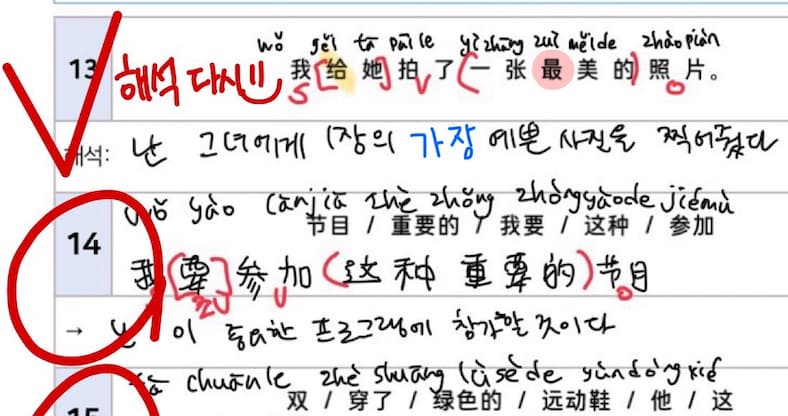 wǒ gěi tā pāile yìzhāng zuì měide zhàopiàn
13 해석 다시!! 我[给 她]拍 了(一 张 最 美 的)照 片。
S V O
해석: 난 그녀에게 1장의 가장 예쁜 사진을 찍어주었다
wǒ yào cānjiā zhè zhǒng zhòngyàode jiémù
节目 / 重要的 / 我要 / 这种 / 参加
14 我[要]参加(这种 重要的)节目
V O
→ 난 이 중요한 프로그램에 참가할 것이다
tā chuānle zhè shuāng lǜsède yùndòngxié
15 双 / 穿了 / 绿色的 / 远动鞋 / 他 / 这